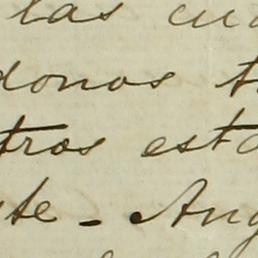 las cua
donos t
tros esta
te - Aug